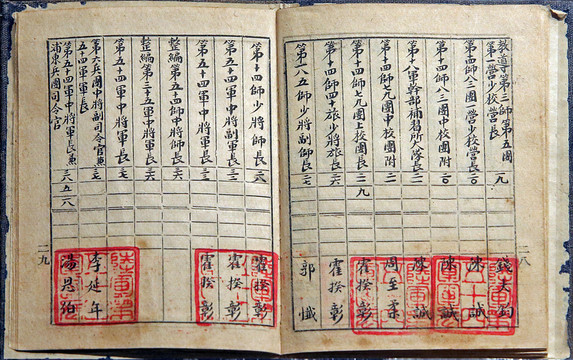 教導第三師第五團
第一營少校營長 一九 錢大鈞
第十四師八三團一營少校營長 二〇 陳誠
第十四師八三團中校團附 二〇 陳誠
十八軍幹部補習所大隊長 二一 陳誠
第十四師七九團中校團附 二一 周至柔
第十四師七九團上校團長 二二 九 霍揆彰
第十四師四十旅少將旅長 二六 霍揆彰
第一八五師少將副師長 二七 郭懺
二八
第十四師少將師長 二八 霍揆彰
第五十四軍少將副軍長 三一 霍揆彰
第五十四軍中將軍長 三二 霍揆彰
整編第五十四師中將師長 三六
整編第三十五軍中將軍長 三六
第五十四軍中將軍長 三七
第六兵團中將副司令官兼 三七
五十四軍軍長 李延年
第五十四軍中將軍長兼 三八 五 二八
浦東兵團司令官 湯恩伯
二九